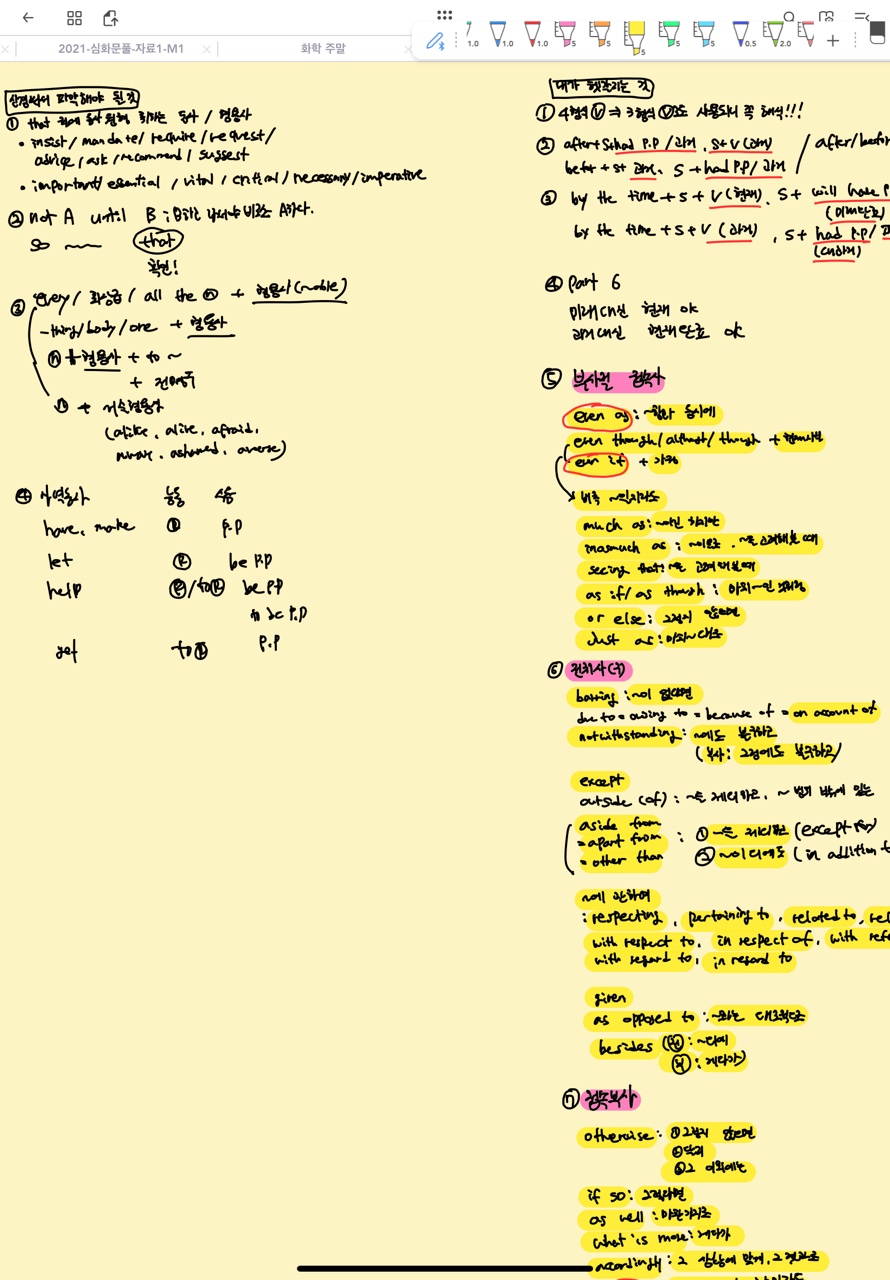 2021-심화문풀-자료1-M1
화학 주말
1.0
1.0
1.0
5
5
5
5
5
0.5
2.0
신경써서 파악해야 될 것
① that 절에 동사원형 취하는 동사 / 형용사
• insist / mandate / require / request /
advise / ask / recommend / suggest
• important / essential / vital / critical / necessary / imperative
② not A until B : B하고 나서야 비로소 A하다.
so that
확인!
③ every / 최상급 / all the ⓝ + 형용사 (~able)
-thing / body / one + 형용사
ⓝ + 형용사 + to ~
+ 전명구
ⓝ + 서술형용사
(alike, alive, afraid,
aware, ashamed, averse)
④ 사역동사 능동 수동
have, make Ⓡ p.p
let Ⓡ be P.P
help Ⓡ/to Ⓡ be P.P
to be P.P
get to Ⓡ P.P
내가 헷갈리는 것
① 4형식 Ⓥ ⇒ 3형식 Ⓥ로도 사용되니 꼭 해석!!!
② after + S + had P.P / 과거, S + V (과거) / after/before
before + S + 과거, S + had P.P / 과거
③ by the time + S + V (현재), S + will have P
(미래완료)
by the time + S + V (과거), S + had P.P /
(대과거)
④ Part 6
미래 대신 현재 야
과거 대신 현재완료 야
⑤ 부사절 접속사
even as : ~함과 동시에
even though / although / though +
even if + 가정
비록 ~일지라도
much as : ~이긴 하지만
inasmuch as : ~이므로, ~을 고려해볼 때
seeing that : ~을 고려해볼 때
as if / as though : 마치 ~인 것처럼
or else : 그렇지 않으면
Just as : 마치 ~대로
⑥ 전치사(구)
barring : ~이 없다면
due to = owing to = because of = on account of
notwithstanding : ~에도 불구하고
(부사 : 그럼에도 불구하고)
except
outside (of) : ~을 제외하고, ~ 범위 밖에 있는
aside from
= apart from : ① ~을 제외하고 (except for)
= other than ② ~이 더하여도 (in addition t
~에 관하여
: respecting, pertaining to, related to, rel
with respect to, in respect of, with refe
with regard to, in regard to
given
as opposed to : ~와는 대조적으로
besides (전 : ~외에
부 : 게다가)
⑦ 접속부사
otherwise : ① 그렇지 않으면
② 달리
③ 그 외에는
if so : 그렇다면
as well : 마찬가지로
what is more : 게다가
accordingly : 그 상황에 맞게, 그 결과로